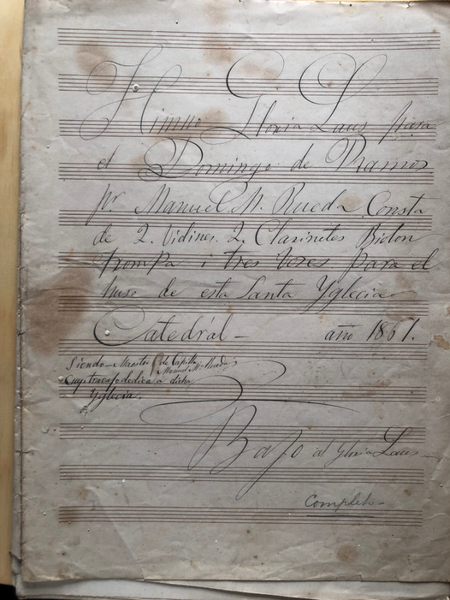 Himno Gloria Laus para
el Domingo de Ramos
pr. Manuel M. Rueda Consta
de 2. Violines. 2. Clarinetes Bidon
trompa i tres vozes para el
huso de esta Santa Yglecia
Catedral – año 1861.
Siendo Maestro de Capilla
Manuel M. Rueda
Cuyo travajo dedica a dicha
Yglecia.
Bajo al Gloria Laus
Completo